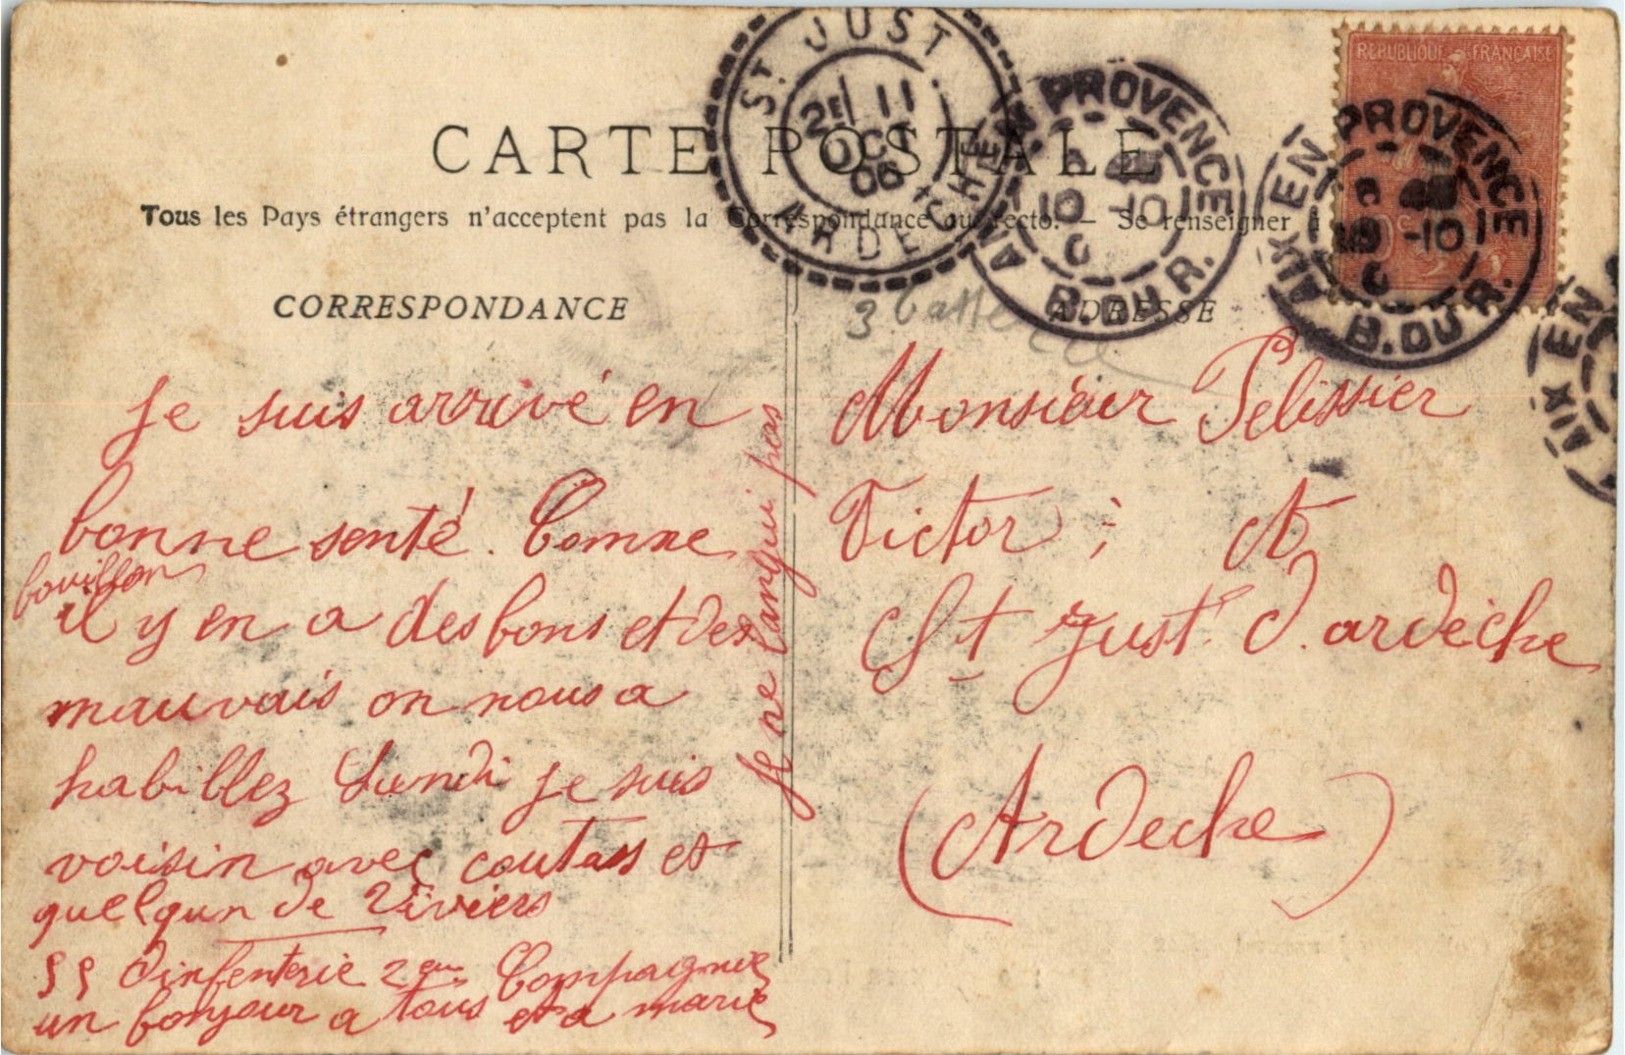 CARTE POSTALE
Tous les Pays étrangers n'acceptent pas la Correspondance au recto. — Se renseigner à
CORRESPONDANCE
Je suis arrivé en
bonne senté. Comme
bouillon
il y en a des bons et des
mauvais on nous a
habillez Lundi je suis
voisin avec coutass et
quelqun de Viviers
55 dinfenterie 2em Compagnie
un bonjour a tous et a marie
Je ne langui pas
ADRESSE
3 batt
Monsieur Pelissier
Victor ; A
St Just d. ardèche
(Ardeche)
ST JUST
ARDECHE
2E 11
OCT
06
AIX EN PROVENCE
10 -10
B. DU R.
REPUBLIQUE FRANÇAISE
AIX EN PROVENCE
-10
B. DU R.
AIX EN